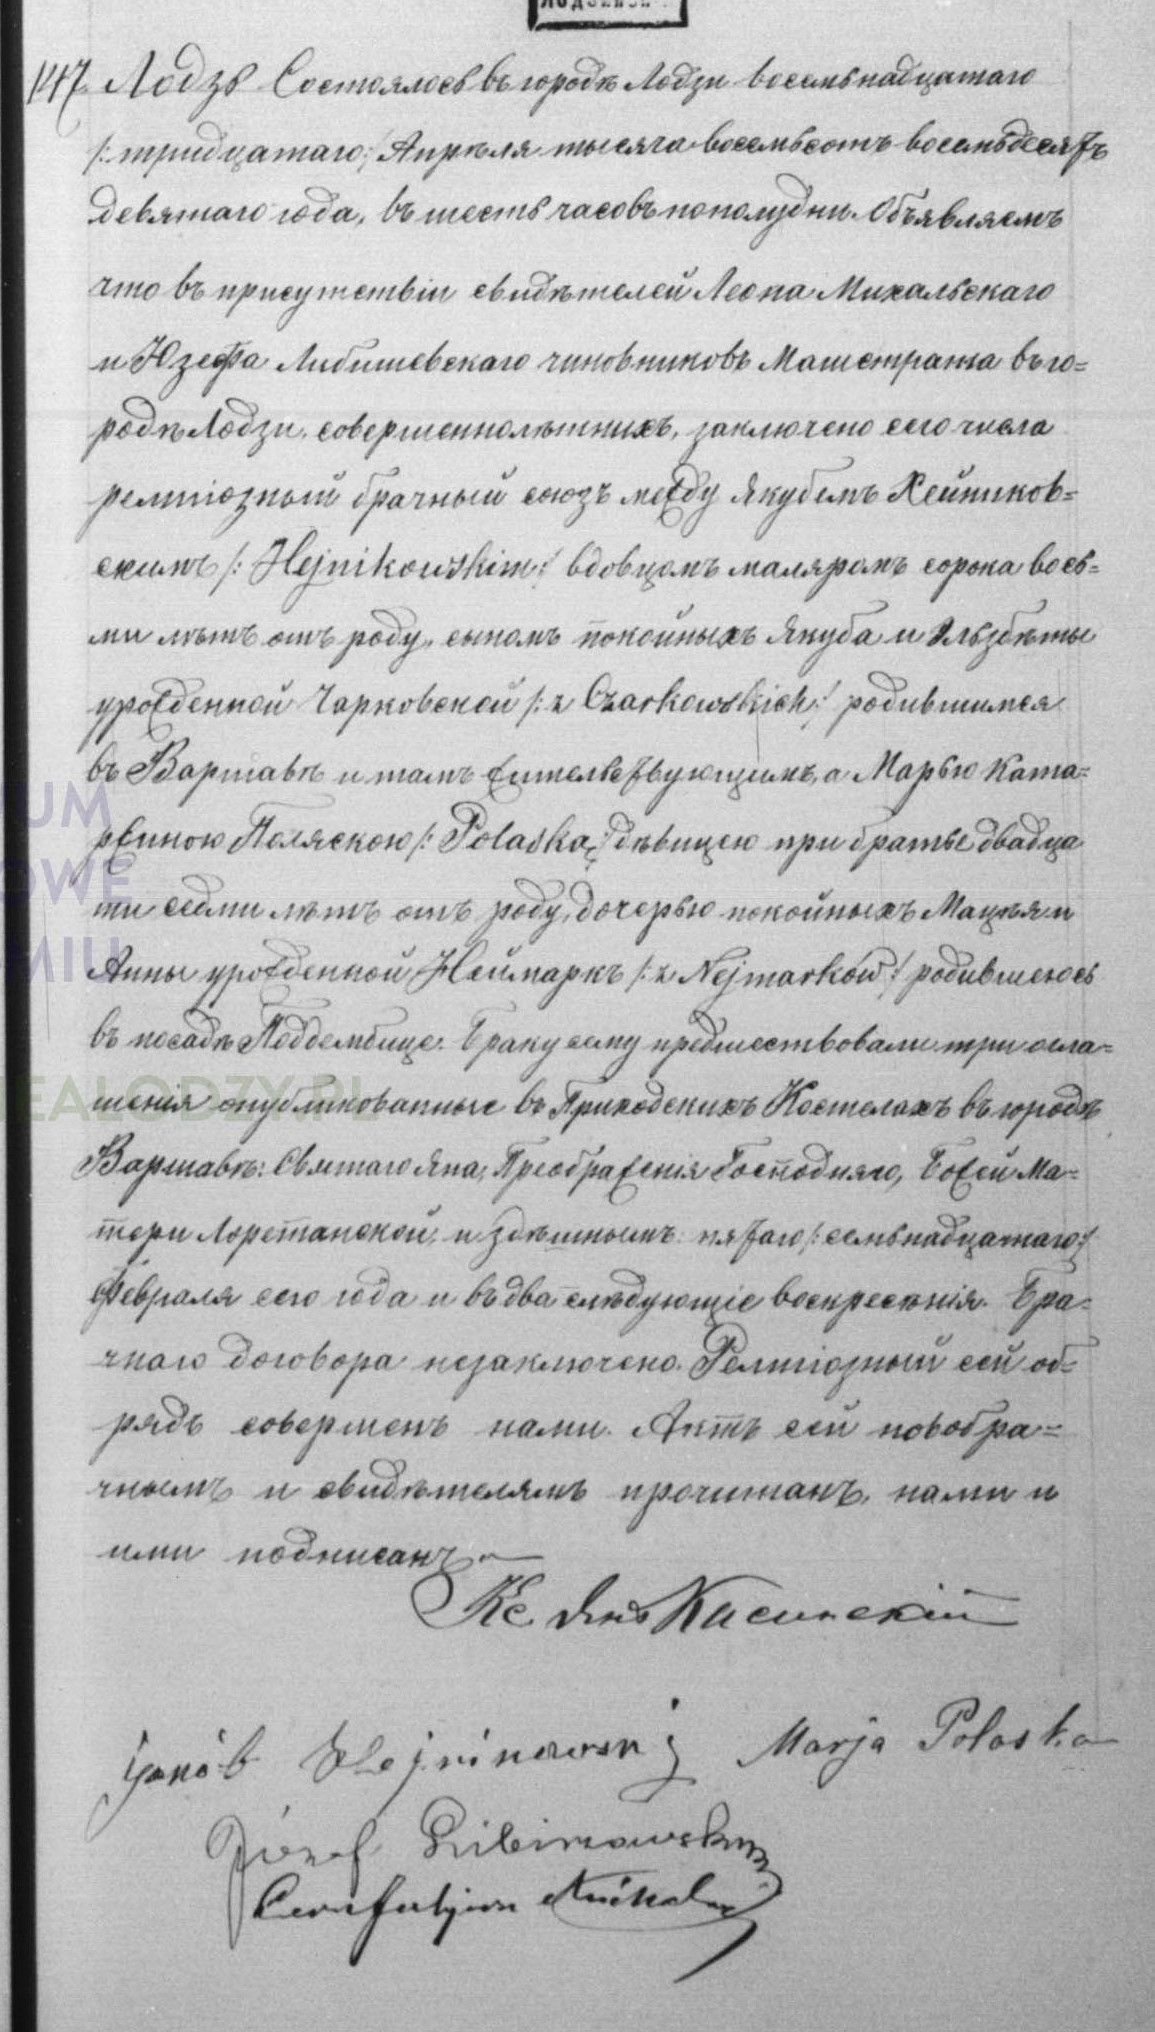 147. Лодзь Состоялось въ городѣ Лодзи восемьнадцатаго
/:тридцатаго:/ Апрѣля тысяча восемьсотъ восемьдесятъ
девятаго года, въ шесть часовъ пополудни. Объявляемъ
что въ присутствіи свидѣтелей Леона Михальскаго
и Юзефа Либишевскаго чиновниковъ Магистрата въ го=
родѣ Лодзи, совершеннолѣтнихъ, заключено сего числа
религіозный брачный союзъ между Якубомъ Хейников=
скимъ /:Hejnikowskim:/ вдовцомъ маляромъ сорока вось=
ми лѣтъ отъ роду, сыномъ покойныхъ Якуба и Эльзбѣты
урожденной Чарковской /:z Czarkowskich:/ родившимся
въ Варшавѣ и тамъ жительствующимъ, а Марью Ката=
ржиною Поляскою /:Polaską:/ дѣвицею при братье двадца
ти седми лѣтъ отъ роду, дочерью покойныхъ Мацѣя и
Анны урожденной Неймаркъ /:z Nejmarków:/ родившеюсь
въ посадѣ Поддембице. Браку сему предшествовали три огла=
шенія опубликованные въ Приходскихъ Костелахъ въ городѣ
Варшавѣ: Святаго Яна, Преображенія Господняго, Божей Ма=
тери Лоретанской, и здѣшнымъ пятаго /:семьнадцатаго:/
Февраля сего года и въ два слѣдующіе воскресѣнія. Бра=
чнаго договора незаключено. Религіозный сей об=
рядъ совершенъ нами. Актъ сей новобра=
чнымъ и свидѣтелямъ прочитанъ, нами и
ими подписанъ.
Кс. Янъ Касинскій
Jakób Hejnikowski Marja Polaska
Józef